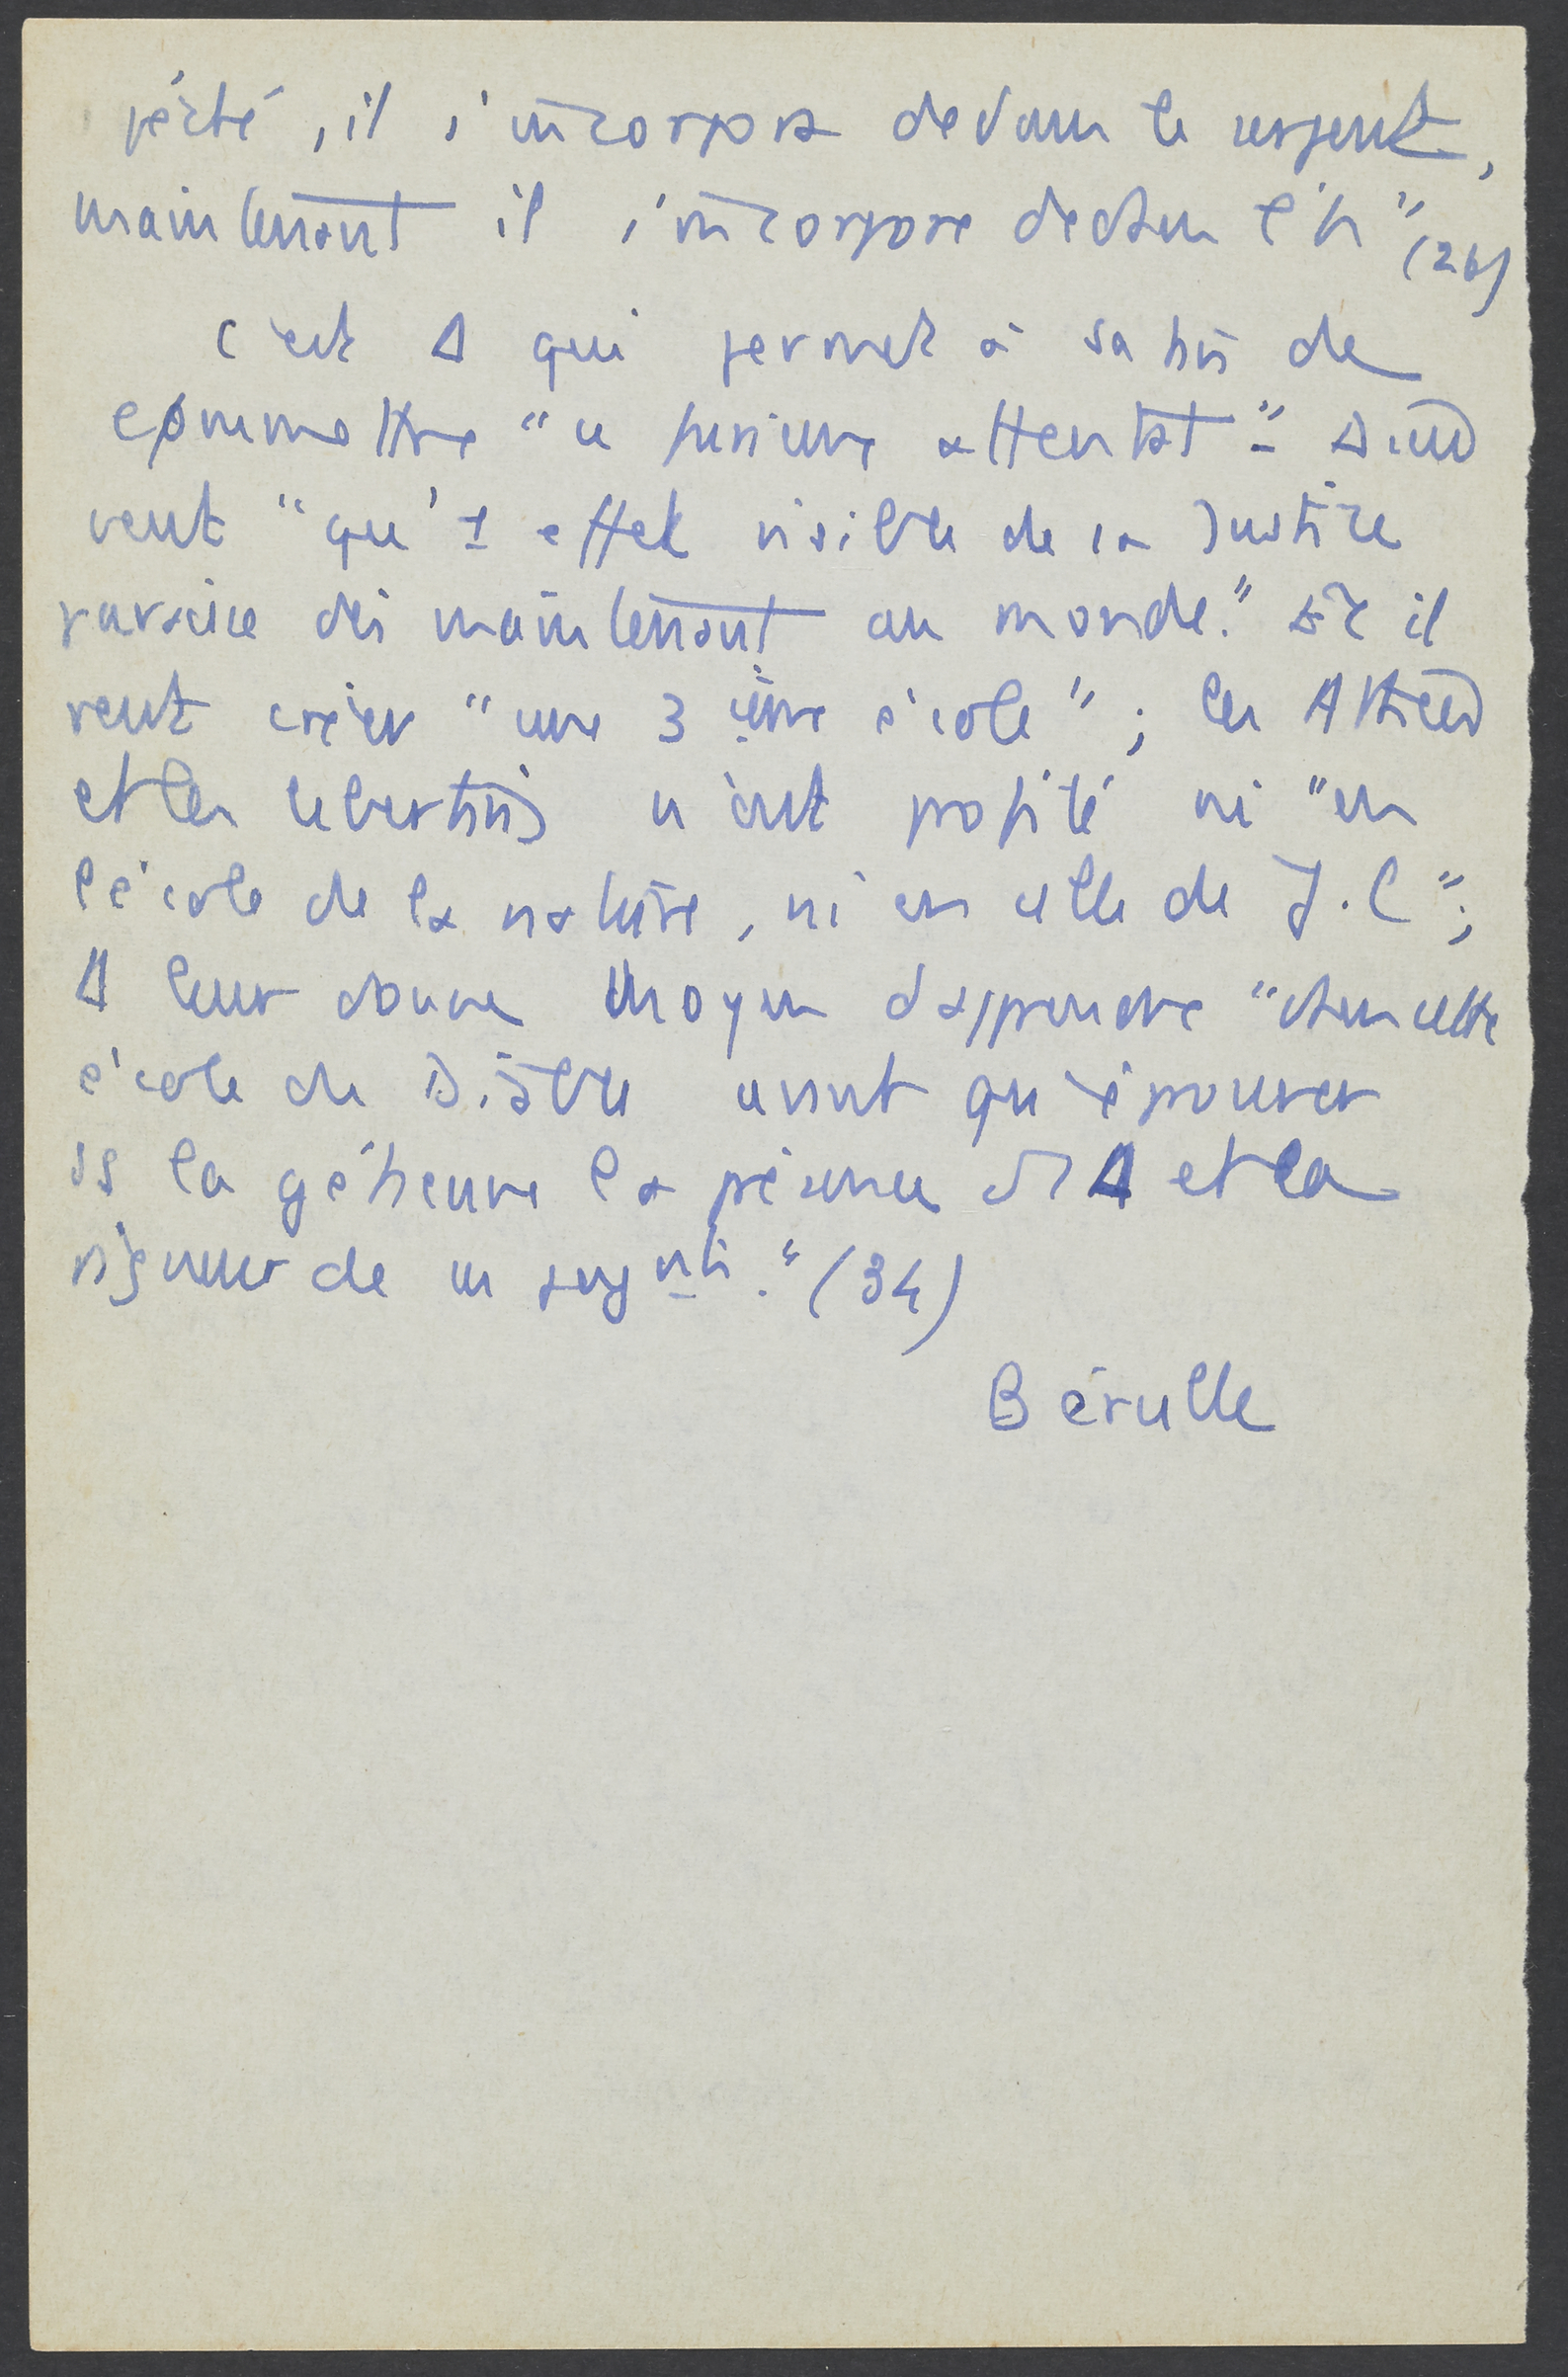 péché, il s'incorpora dedans le serpent,
maintenant il s'incorpore dedans l'h" (26)
C'est Δ qui permet à satan de
commettre "ce furieux attentat": Dieu
veut "qu'1 effet visible de sa Justice
paraisse dès maintenant au monde." Et il
veut créer "une 3 ième école"; les Athées
et les libertins n'ont profité ni "en
l'école de la nature, ni en celle de J.C";
Δ leur donne moyen d'apprendre "dans cette
école de Diable avant qu'éprouver
ds la géhenne la présence d'1 Δ et la
rigueur de ses jugmts." (34)
Bérulle